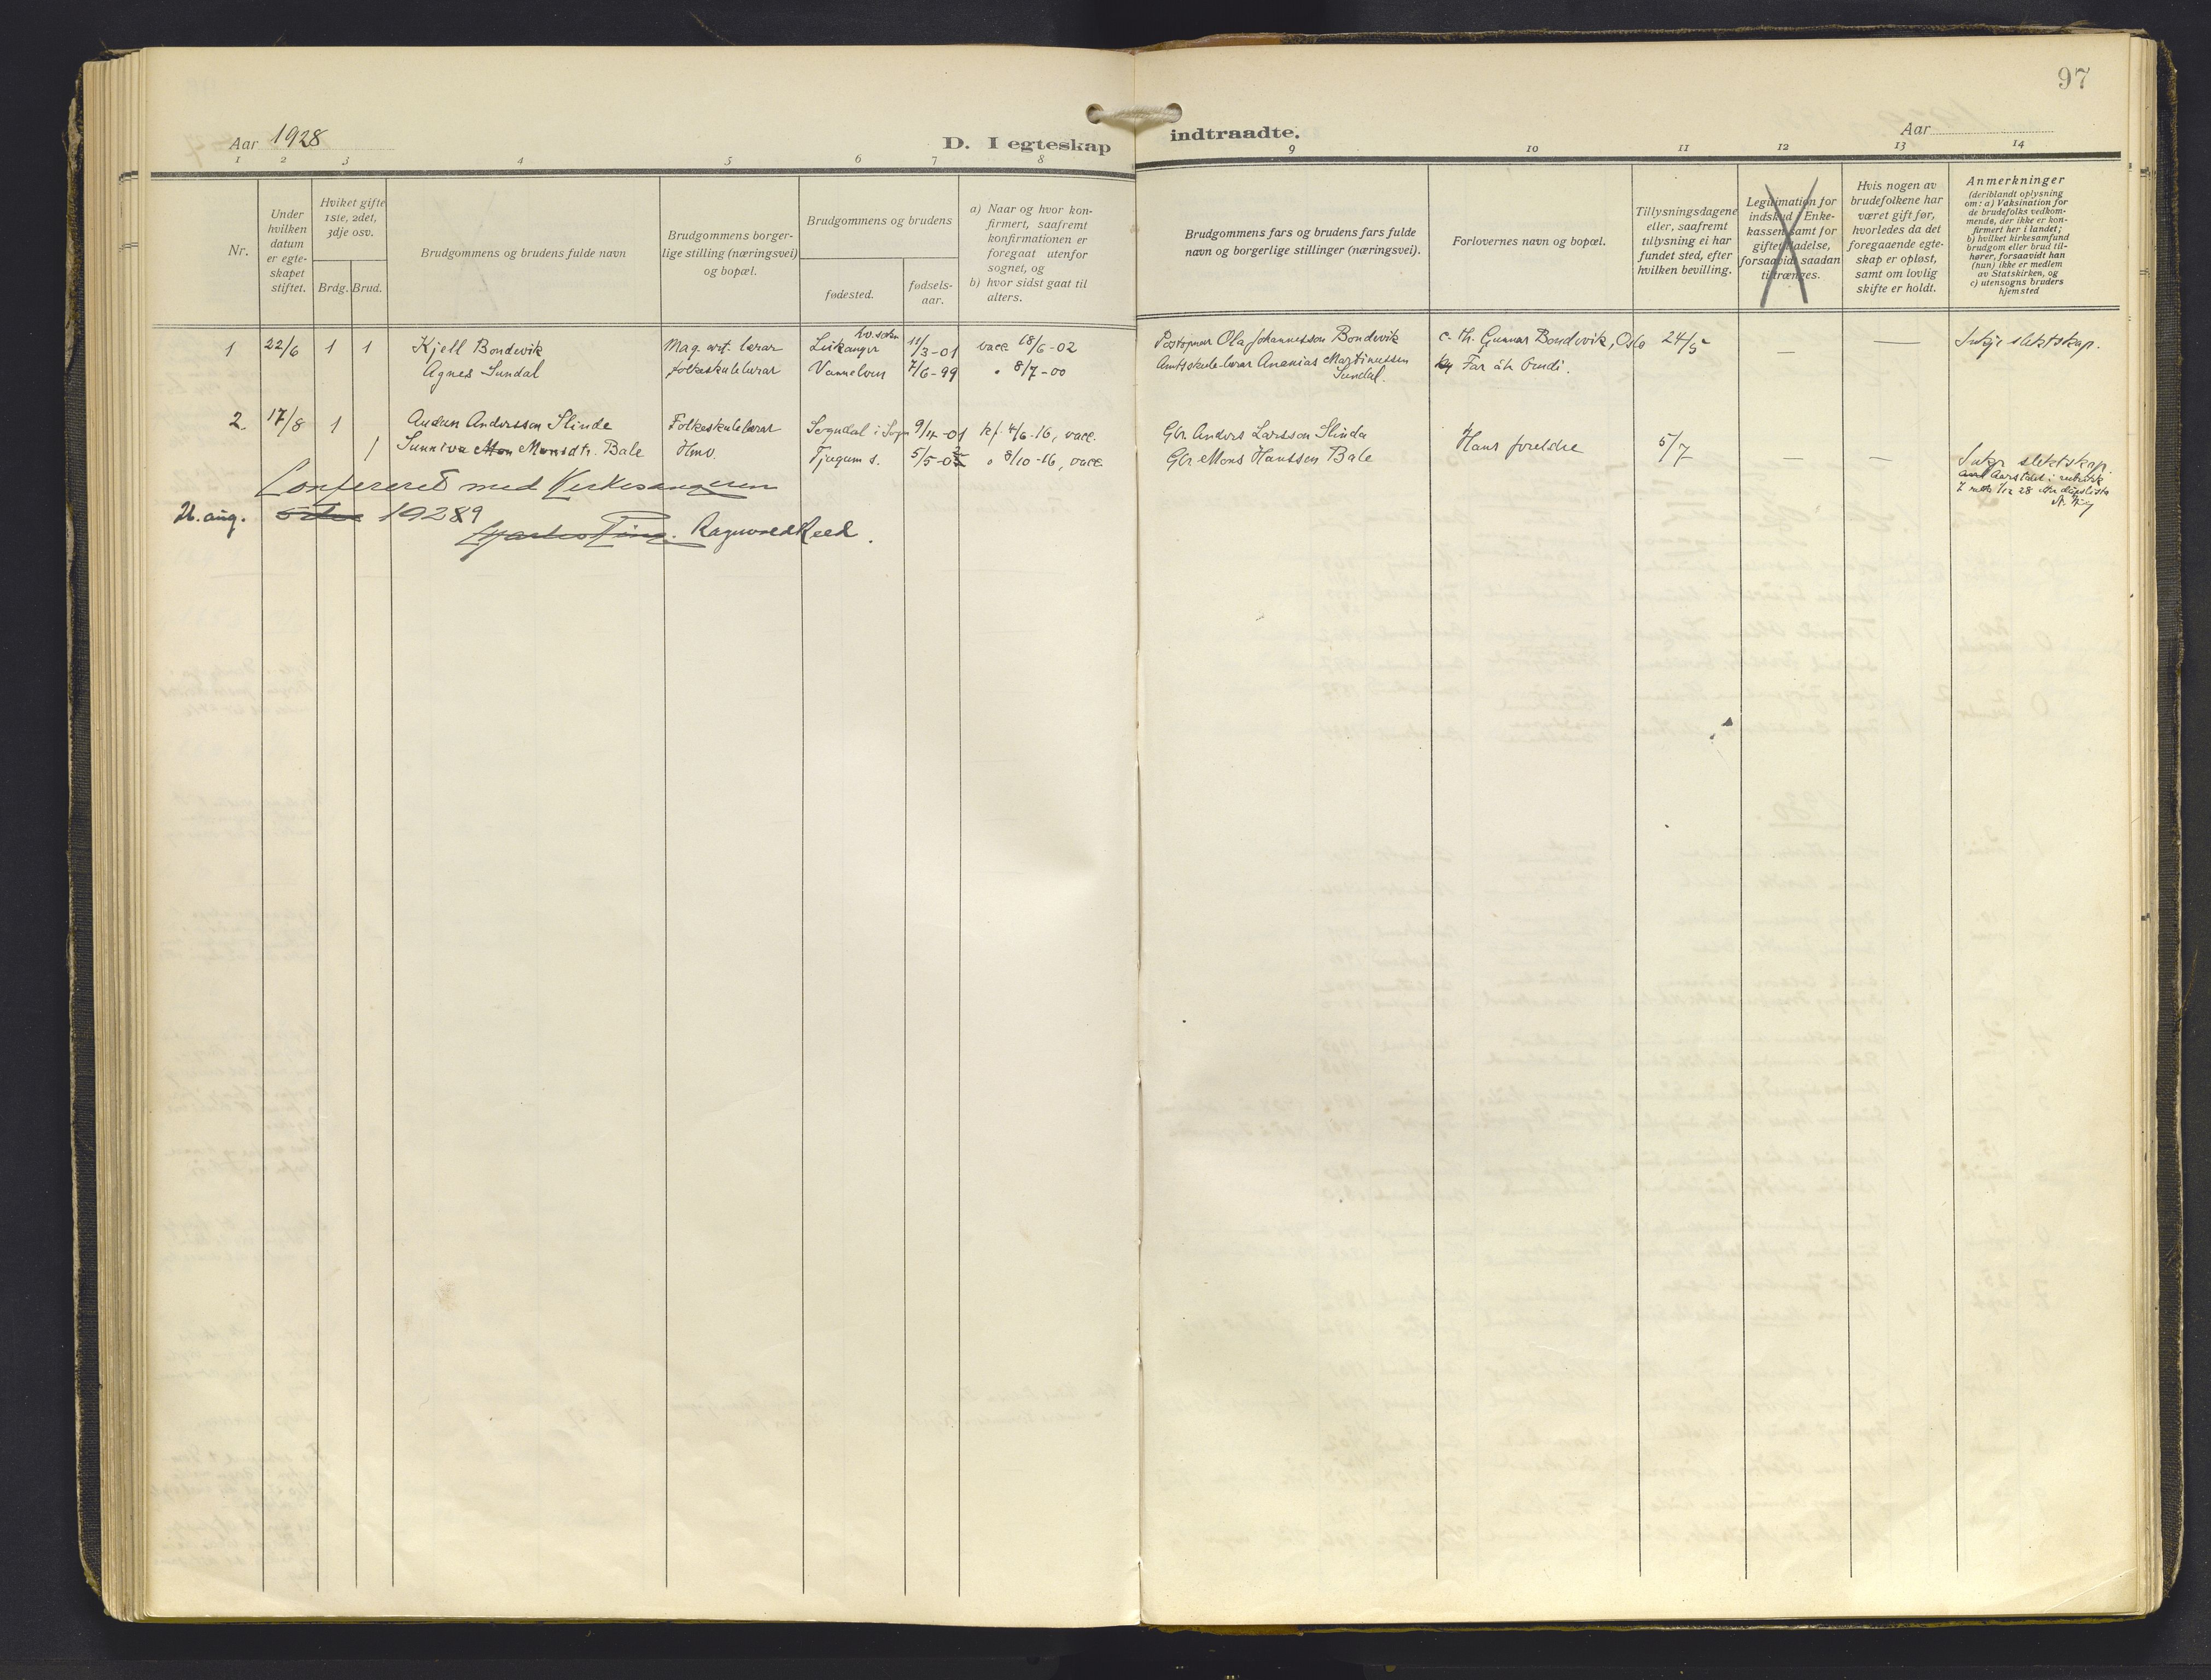 97
Aar 1928
D. I egteskap indtraadte.
Aar
1 2 3 4 5 6 7 8 9 10 11 12 13 14
Nr.
Under hvilken datum er egteskapet stiftet.
Hviket gifte 1ste, 2det, 3dje osv.
Brdg. Brud.
Brudgommens og brudens fulde navn
Brudgommens borgerlige stilling (næringsvei) og bopæl.
Brudgommens og brudens
fødested.
fødselsaar.
a) Naar og hvor konfirmert, saafremt konfirmationen er foregaat utenfor sognet, og
b) hvor sidst gaat til alters.
Brudgommens fars og brudens fars fulde navn og borgerlige stillinger (næringsvei).
Forlovernes navn og bopæl.
Tillysningsdagene eller, saafremt tillysning ei har fundet sted, efter hvilken bevilling.
Legitimation for indskud i Enkekassen samt for giftetilladelse, forsaavidt saadan tiltrænges.
Hvis nogen av brudefolkene har været gift før, hvorledes da det foregaaende egteskap er opløst, samt om lovlig skifte er holdt.
Anmerkninger
(deriblandt oplysning om: a) Vaksination for de brudefolks vedkommende, der ikke er konfirmert her i landet; b) hvilket kirkesamfund brudgom eller brud tilhører, forsaavidt han (hun) ikke er medlem av Statskirken, og c) utensogns bruders hjemsted
1 22/6 1 1 Kjell Bondevik Mag. art. lærar Leikanger 11/3-01 vacc. 18/6-02 Postopnar Ola Johannesson Bondevik c. th. Gunnar Bondevik, Oslo 24/5 — — Inkje slektskap.
Agnes Sundal folkeskulelærar 7/6-99 " 8/7-00 Amtsskule-lærar Ananias Martinussen Sundal. Far åt brudi.
2. 17/8 1 Audun Andersson Slinde Folkeskulelærar Sogndal i Sogn 9/12-01 kf. 4/6-16, vacc. Gbr. Anders Larsson Slinde Hans foreldre 5/7 — — Inkje slektskap.
1 Sunniva Monsdtr. Bale Hmv. Tjugum s. 5/5-05 " 8/10-16, vacc. Gbr. Mons Hanssen Bale
Aarstalet i rubrikk
7 retta 1/12 28 etter dåpslista
Confereret med Kirkesangeren
26. aug. 1928 9
Ragnvald Reed.